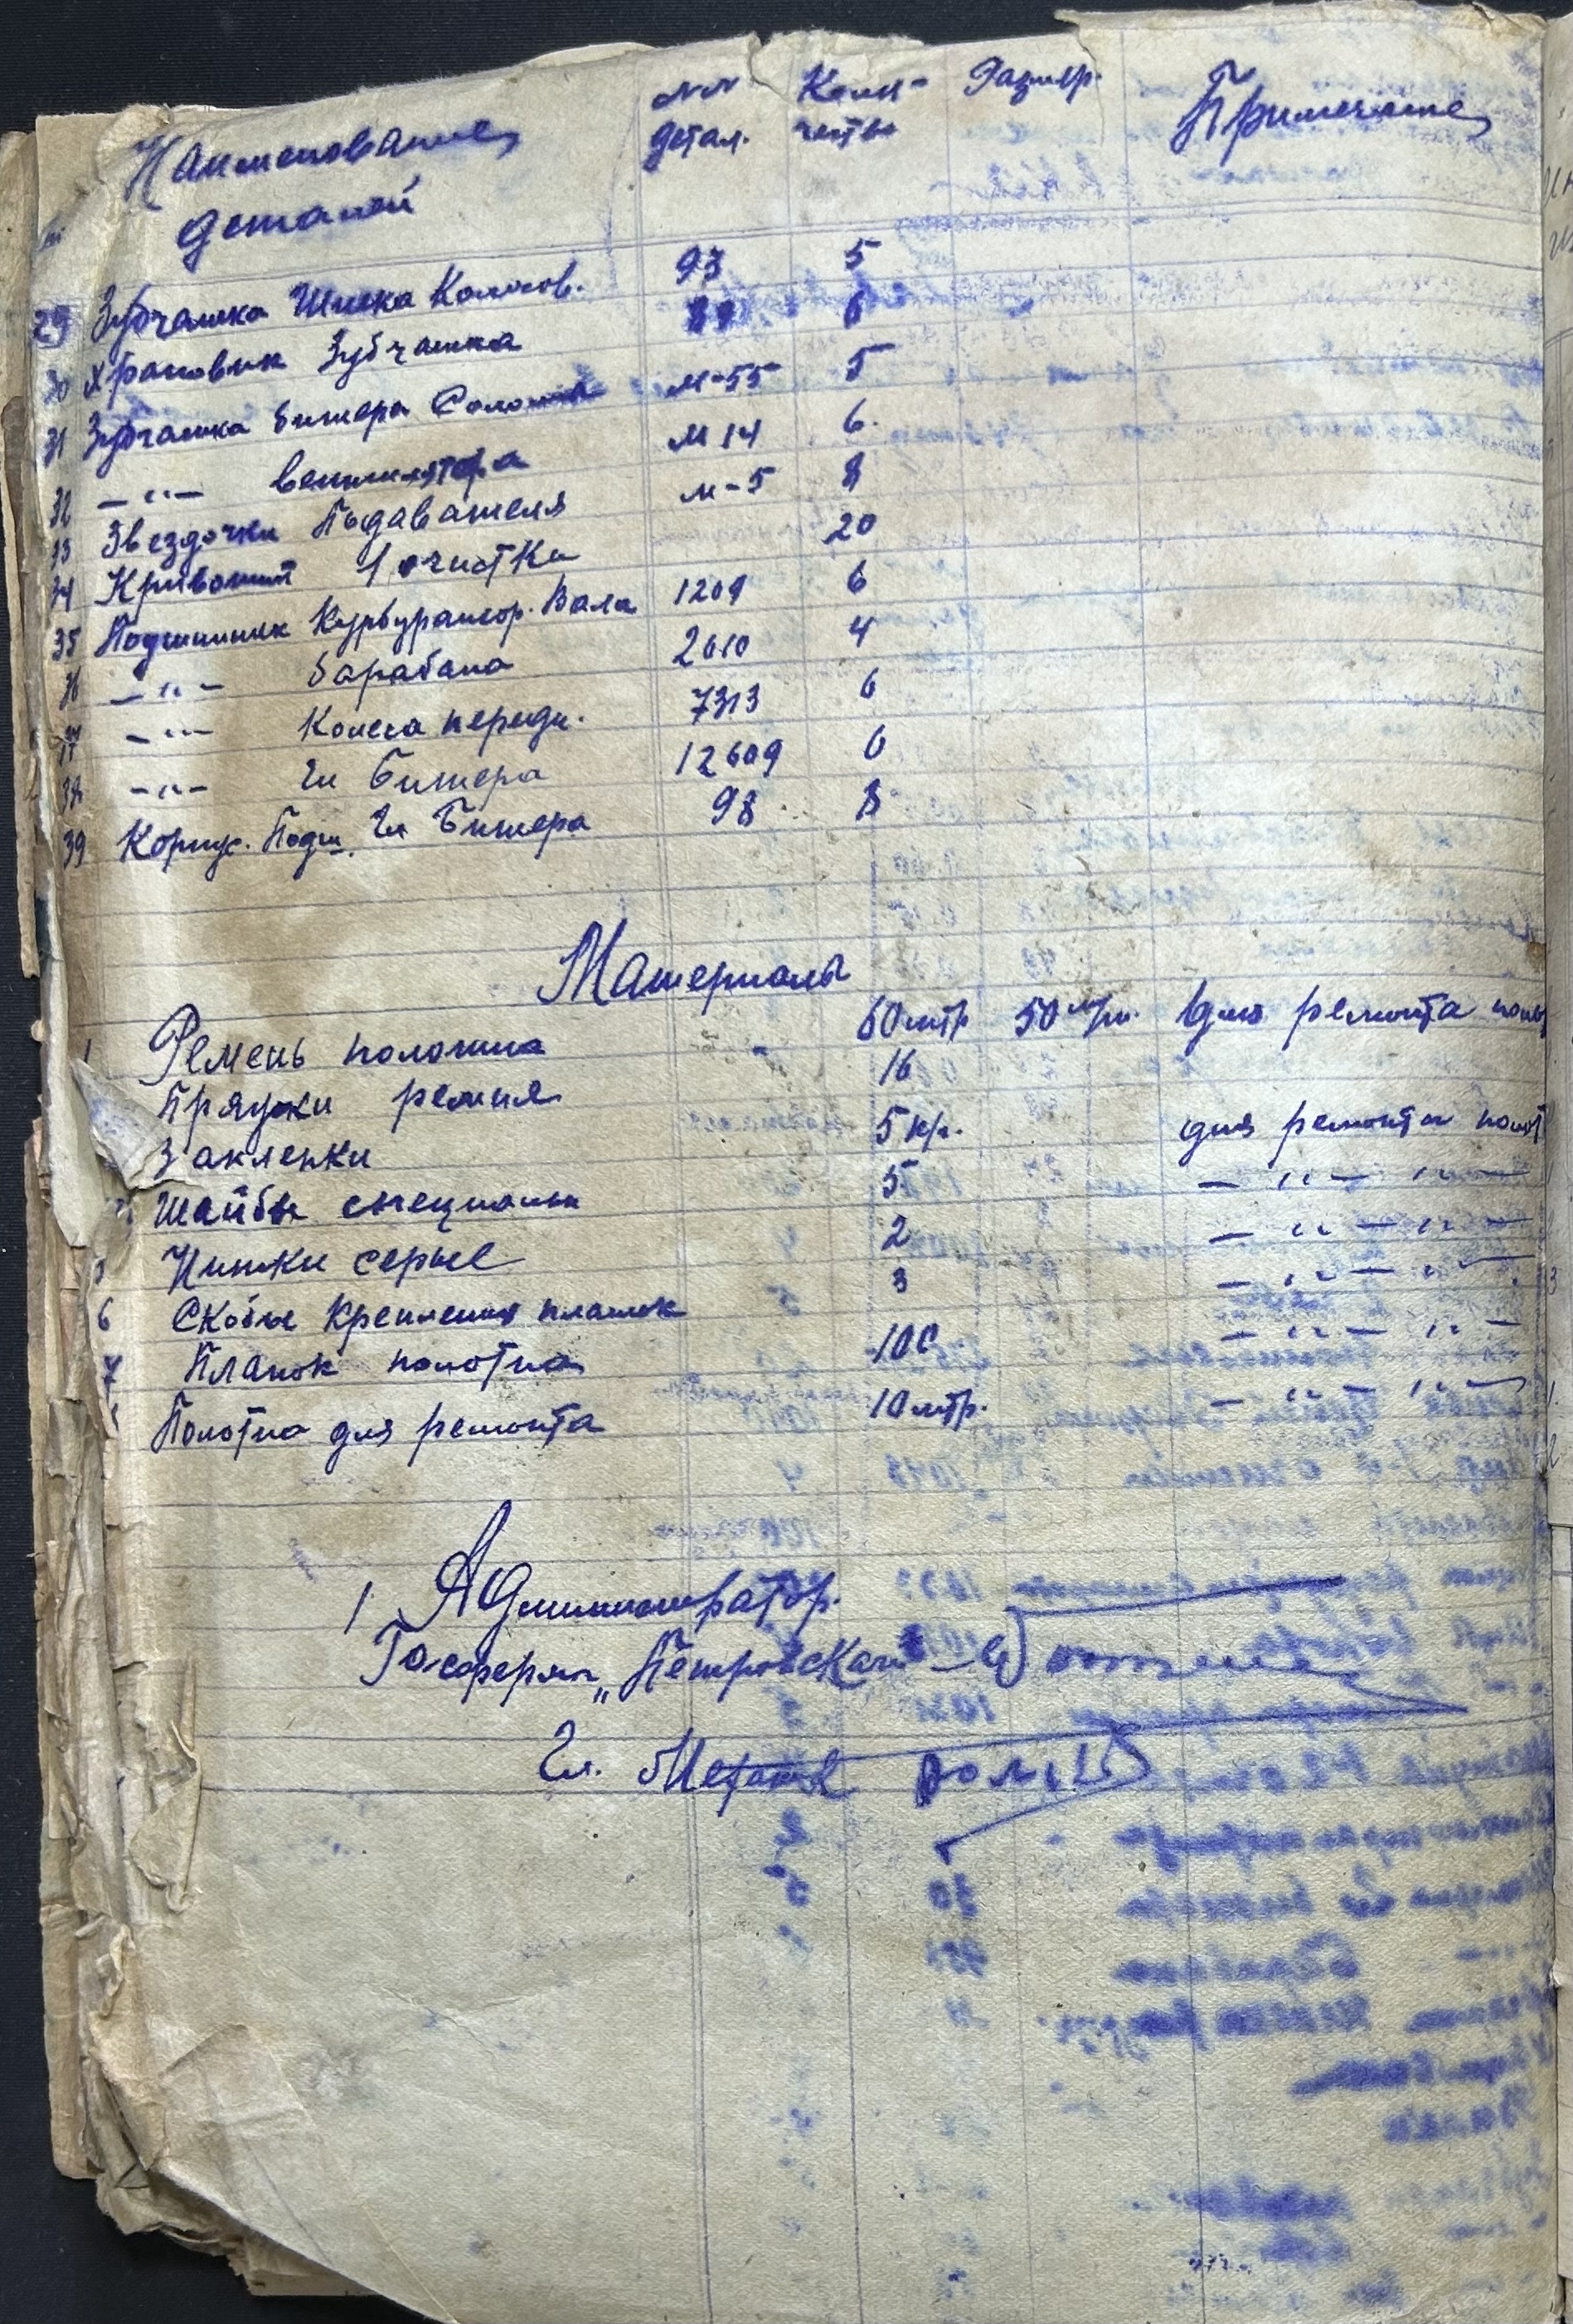 Наименование деталей № № детал. Коли-чество Размер. Примечание
29 Зубчатка Шнека Колосов. 93 5
30 Храповик Зубчатка 6
31 Зубчатка Битера Солом М-55 5
32 —"— вентилятора М 14 6.
33 Звездочки Подавателя м-5 8
34 Кривошип 1 очистки 20
35 Подшипник Вала 1209 6
36 —"— Барабана 2610 4
—"— Колеса передн. 7313 6
38 —"— Гл Битера 12609 6
39 Корпус. Подш. Гл Битера 98 8
Материалы
1 Ремень полотна - 60 мтр 50 м/м. для ремонта
Пряжки ремня 16
Заклепки 5 кг. для ремонта полот
Шайбы специальн 5 —"—"—
Нитки серые 2 —"—"—
6 Скобы крепления планок 3 —"—"—
7 Планок полотна 100 —"—"—
Полотна для ремонта 10 мтр. —"—"—
Администратор.
Госферм „Петровская"
Гл. Механик